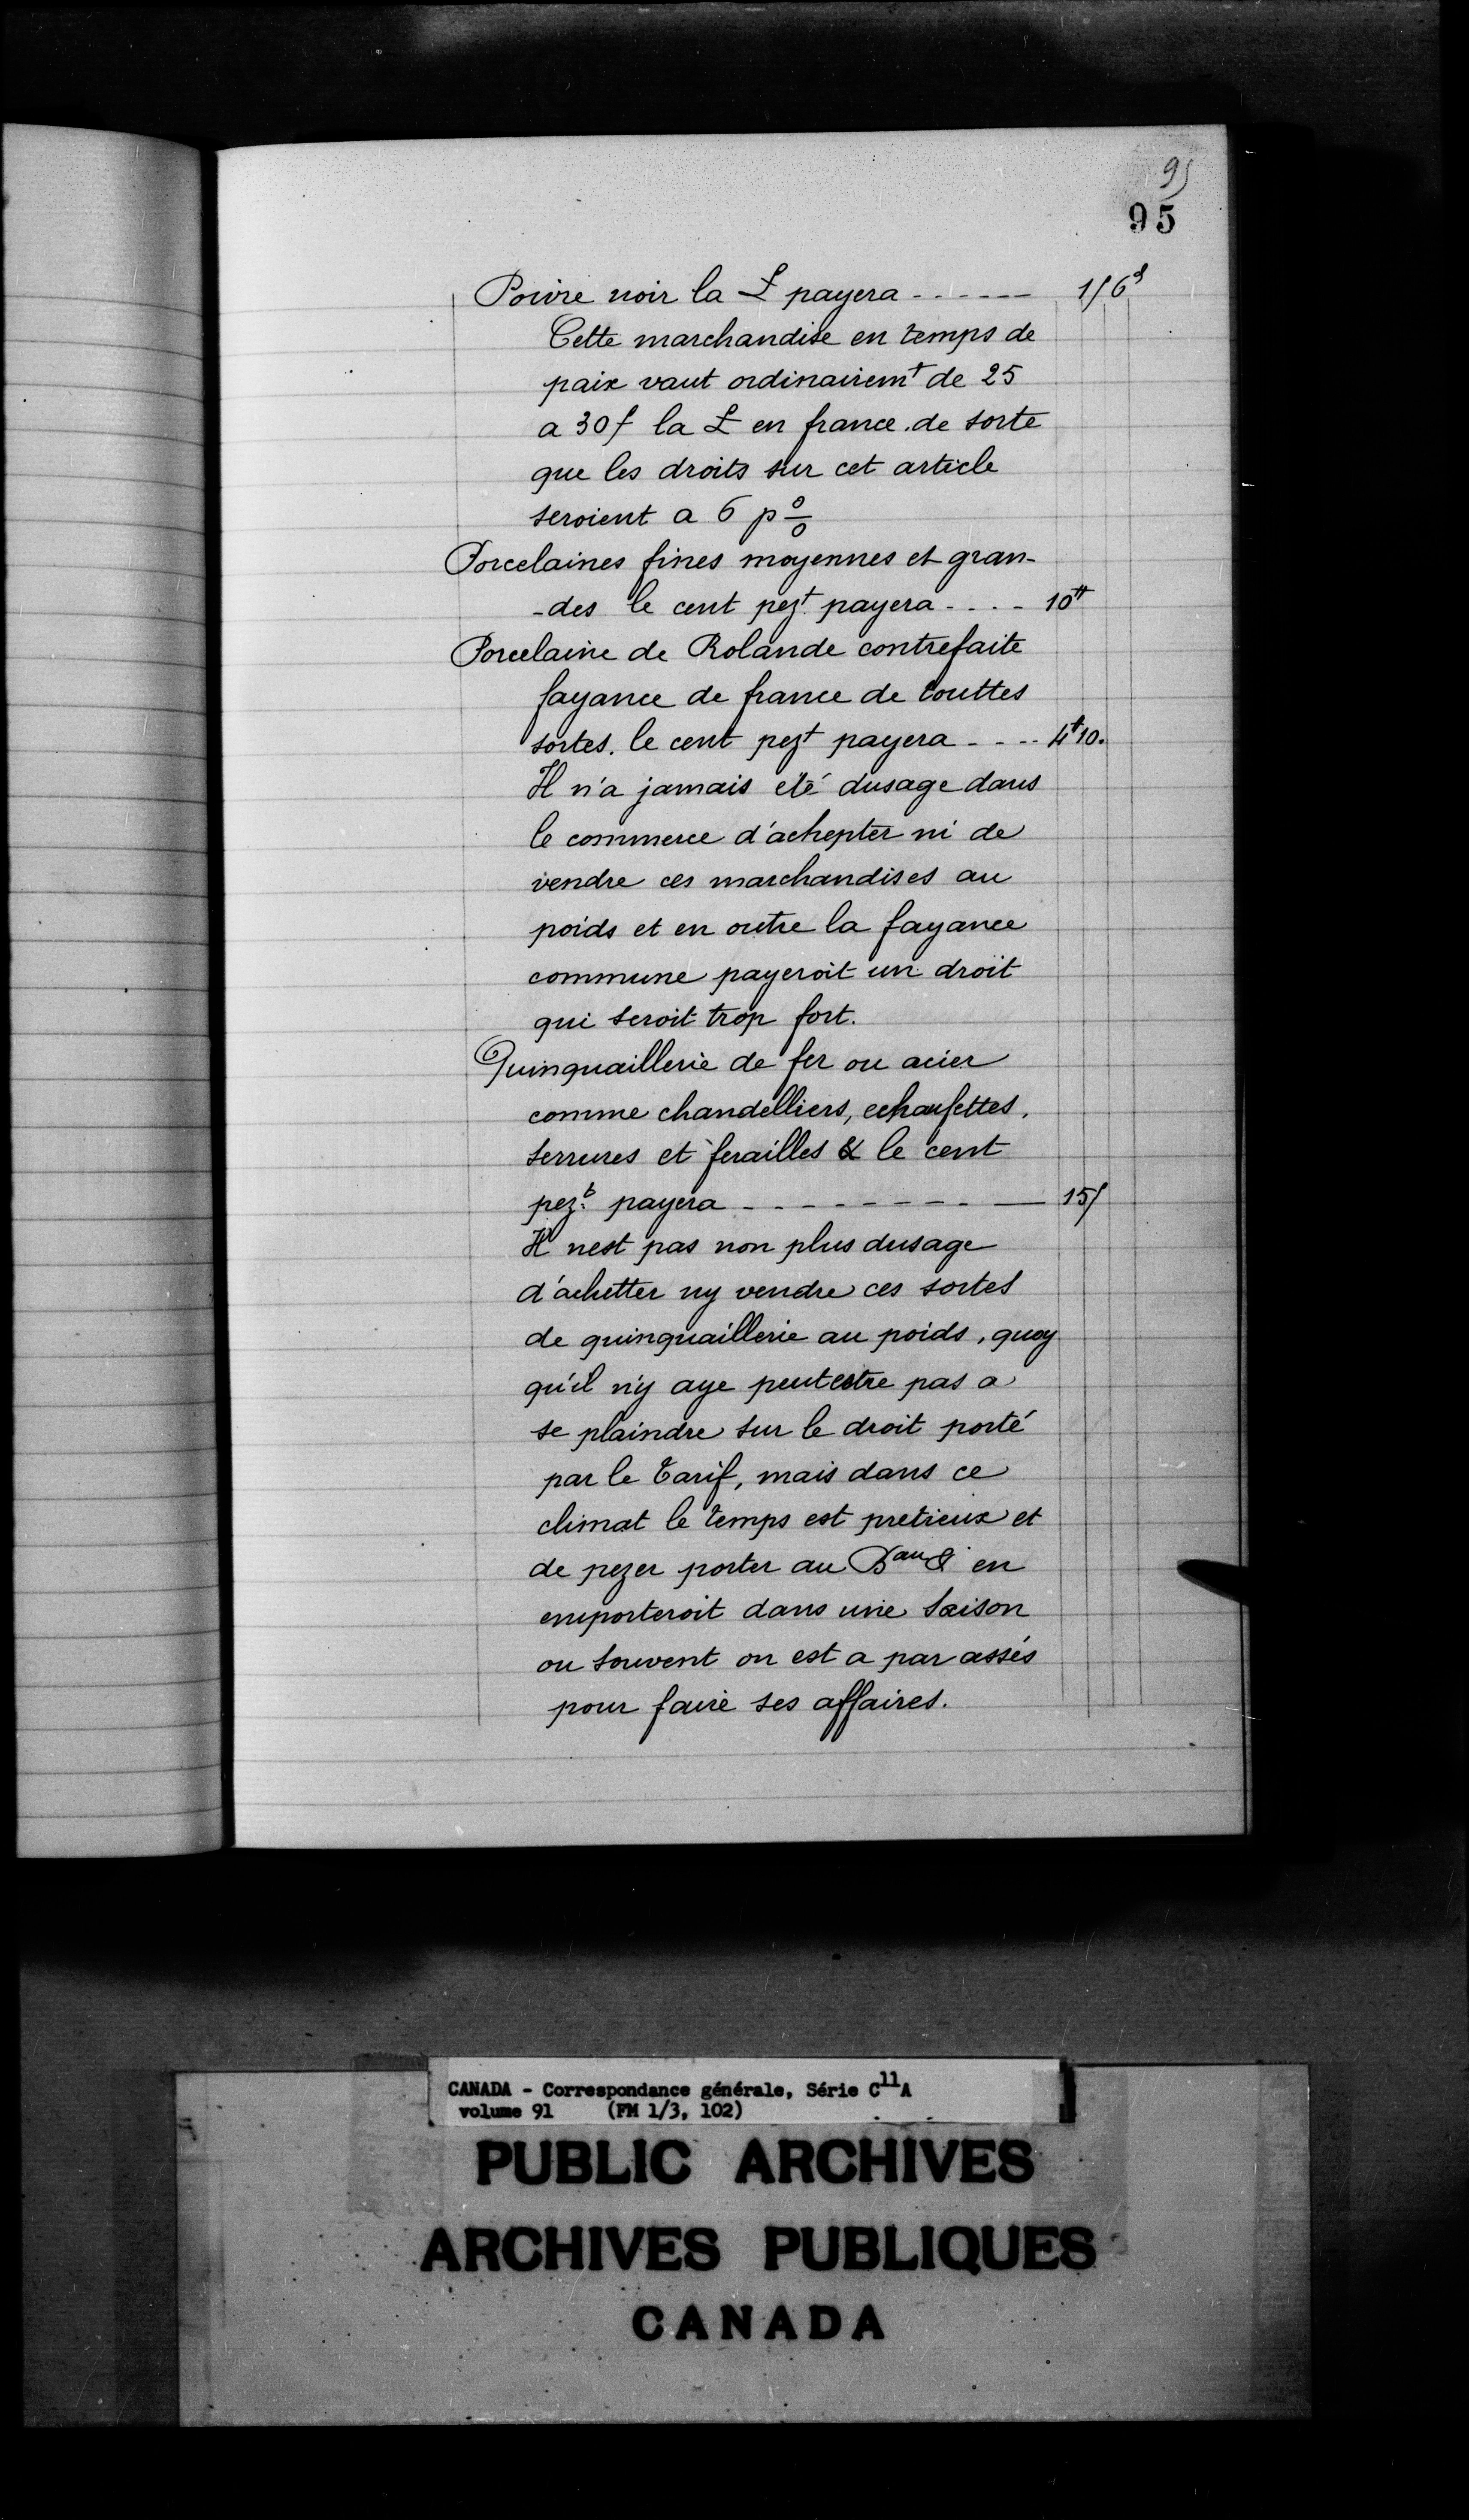 95
95
Poivre noir la £ payera - - - - - - 1ſ 6d
Cette marchandise en temps de
paix vaut ordinairemt de 25
a 30ſ la £ en france. de sorte
que les droits sur cet article
seroient a 6 p º/o
Porcelaines fines moyennes et gran-
-des le cent pezt payera - - - - 10tt
Porcelaine de Rolande contrefaite
fayance de france de touttes
sortes. le cent pezt payera - - - - 4t10.
Il n'a jamais eté dusage dans
le commerce d'achepter ni de
vendre ces marchandises au
poids et en outre la fayance
commune payeroit un droit
qui seroit trop fort.
Quinquaillerie de fer ou acier
comme chandelliers, echaufettes,
serrures et ferailles & le cent
pezt payera - - - - - - - - 15ſ
Il nest pas non plus dusage
d'achetter ny vendre ces sortes
de quinquaillerie au poids, quoy
qu'il n'y aye peutestre pas a
se plaindre sur le droit porté
par le tarif, mais dans ce
climat le temps est pretieux et
de pezer porter au Bau & en
emporteroit dans une saison
ou souvent on est a par assés
pour faire ses affaires.
CANADA - Correspondance générale, Série C11A
volume 91 (FM 1/3, 102)
PUBLIC ARCHIVES
ARCHIVES PUBLIQUES
CANADA